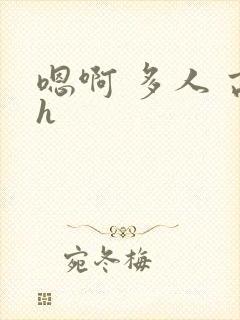 嗯啊 多人
h
宛冬梅